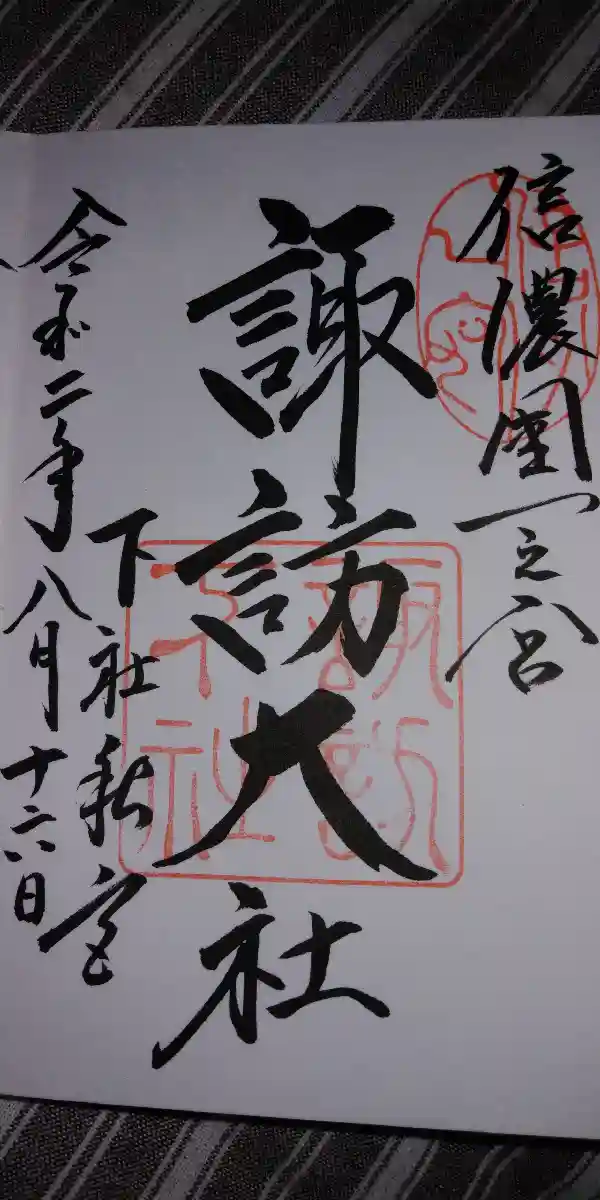 信濃國一之宮
諏訪大社
下社秋宮
令和二年八月十六日
諏訪下社